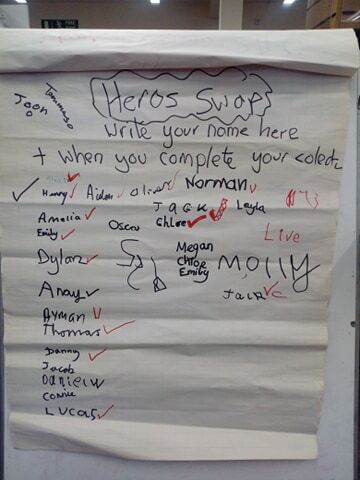 Tommaso
Joon
Heros Swap
Write your name here
+ when you complete your colect
Henry Aiden Oliver Norman
Amelia Oscar Jack Layla
Emily Chloe
Live
Dylan Megan
Chloe Molly
Emily
Anay Jack
Ayman
Thomas
Danny
Jacob
Daniel W
Connie
Lucas